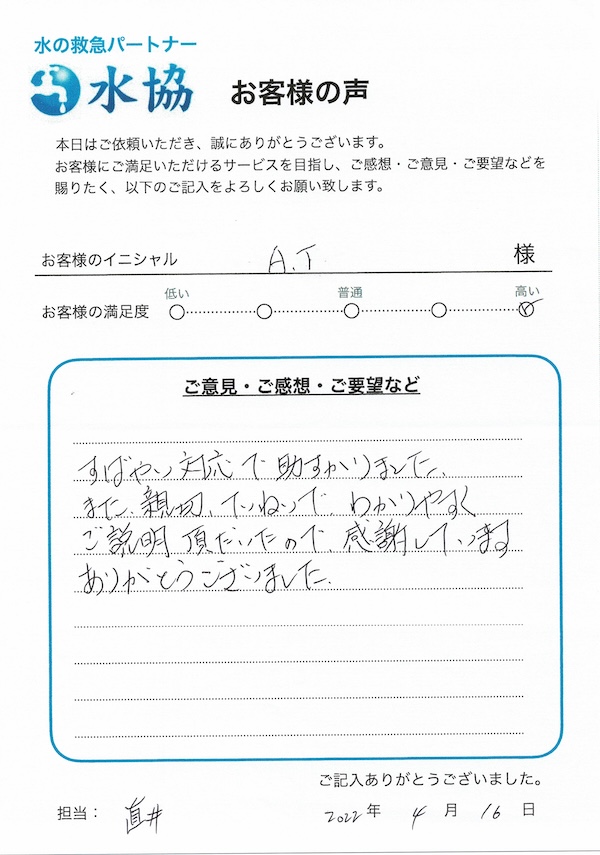 水の救急パートナー
水協 お客様の声
本日はご依頼いただき、誠にありがとうございます。
お客様にご満足いただけるサービスを目指し、ご感想・ご意見・ご要望などを
賜りたく、以下のご記入をよろしくお願い致します。
お客様のイニシャル A.T 様
低い 普通 高い
お客様の満足度
ご意見・ご感想・ご要望など
すばやい対応で助すかりました。
また、親切、ていねいで、わかりやすく
ご説明頂だいたので、感謝しています
ありがとうございました。
ご記入ありがとうございました。
担当： 直井 2022年 4月 16日